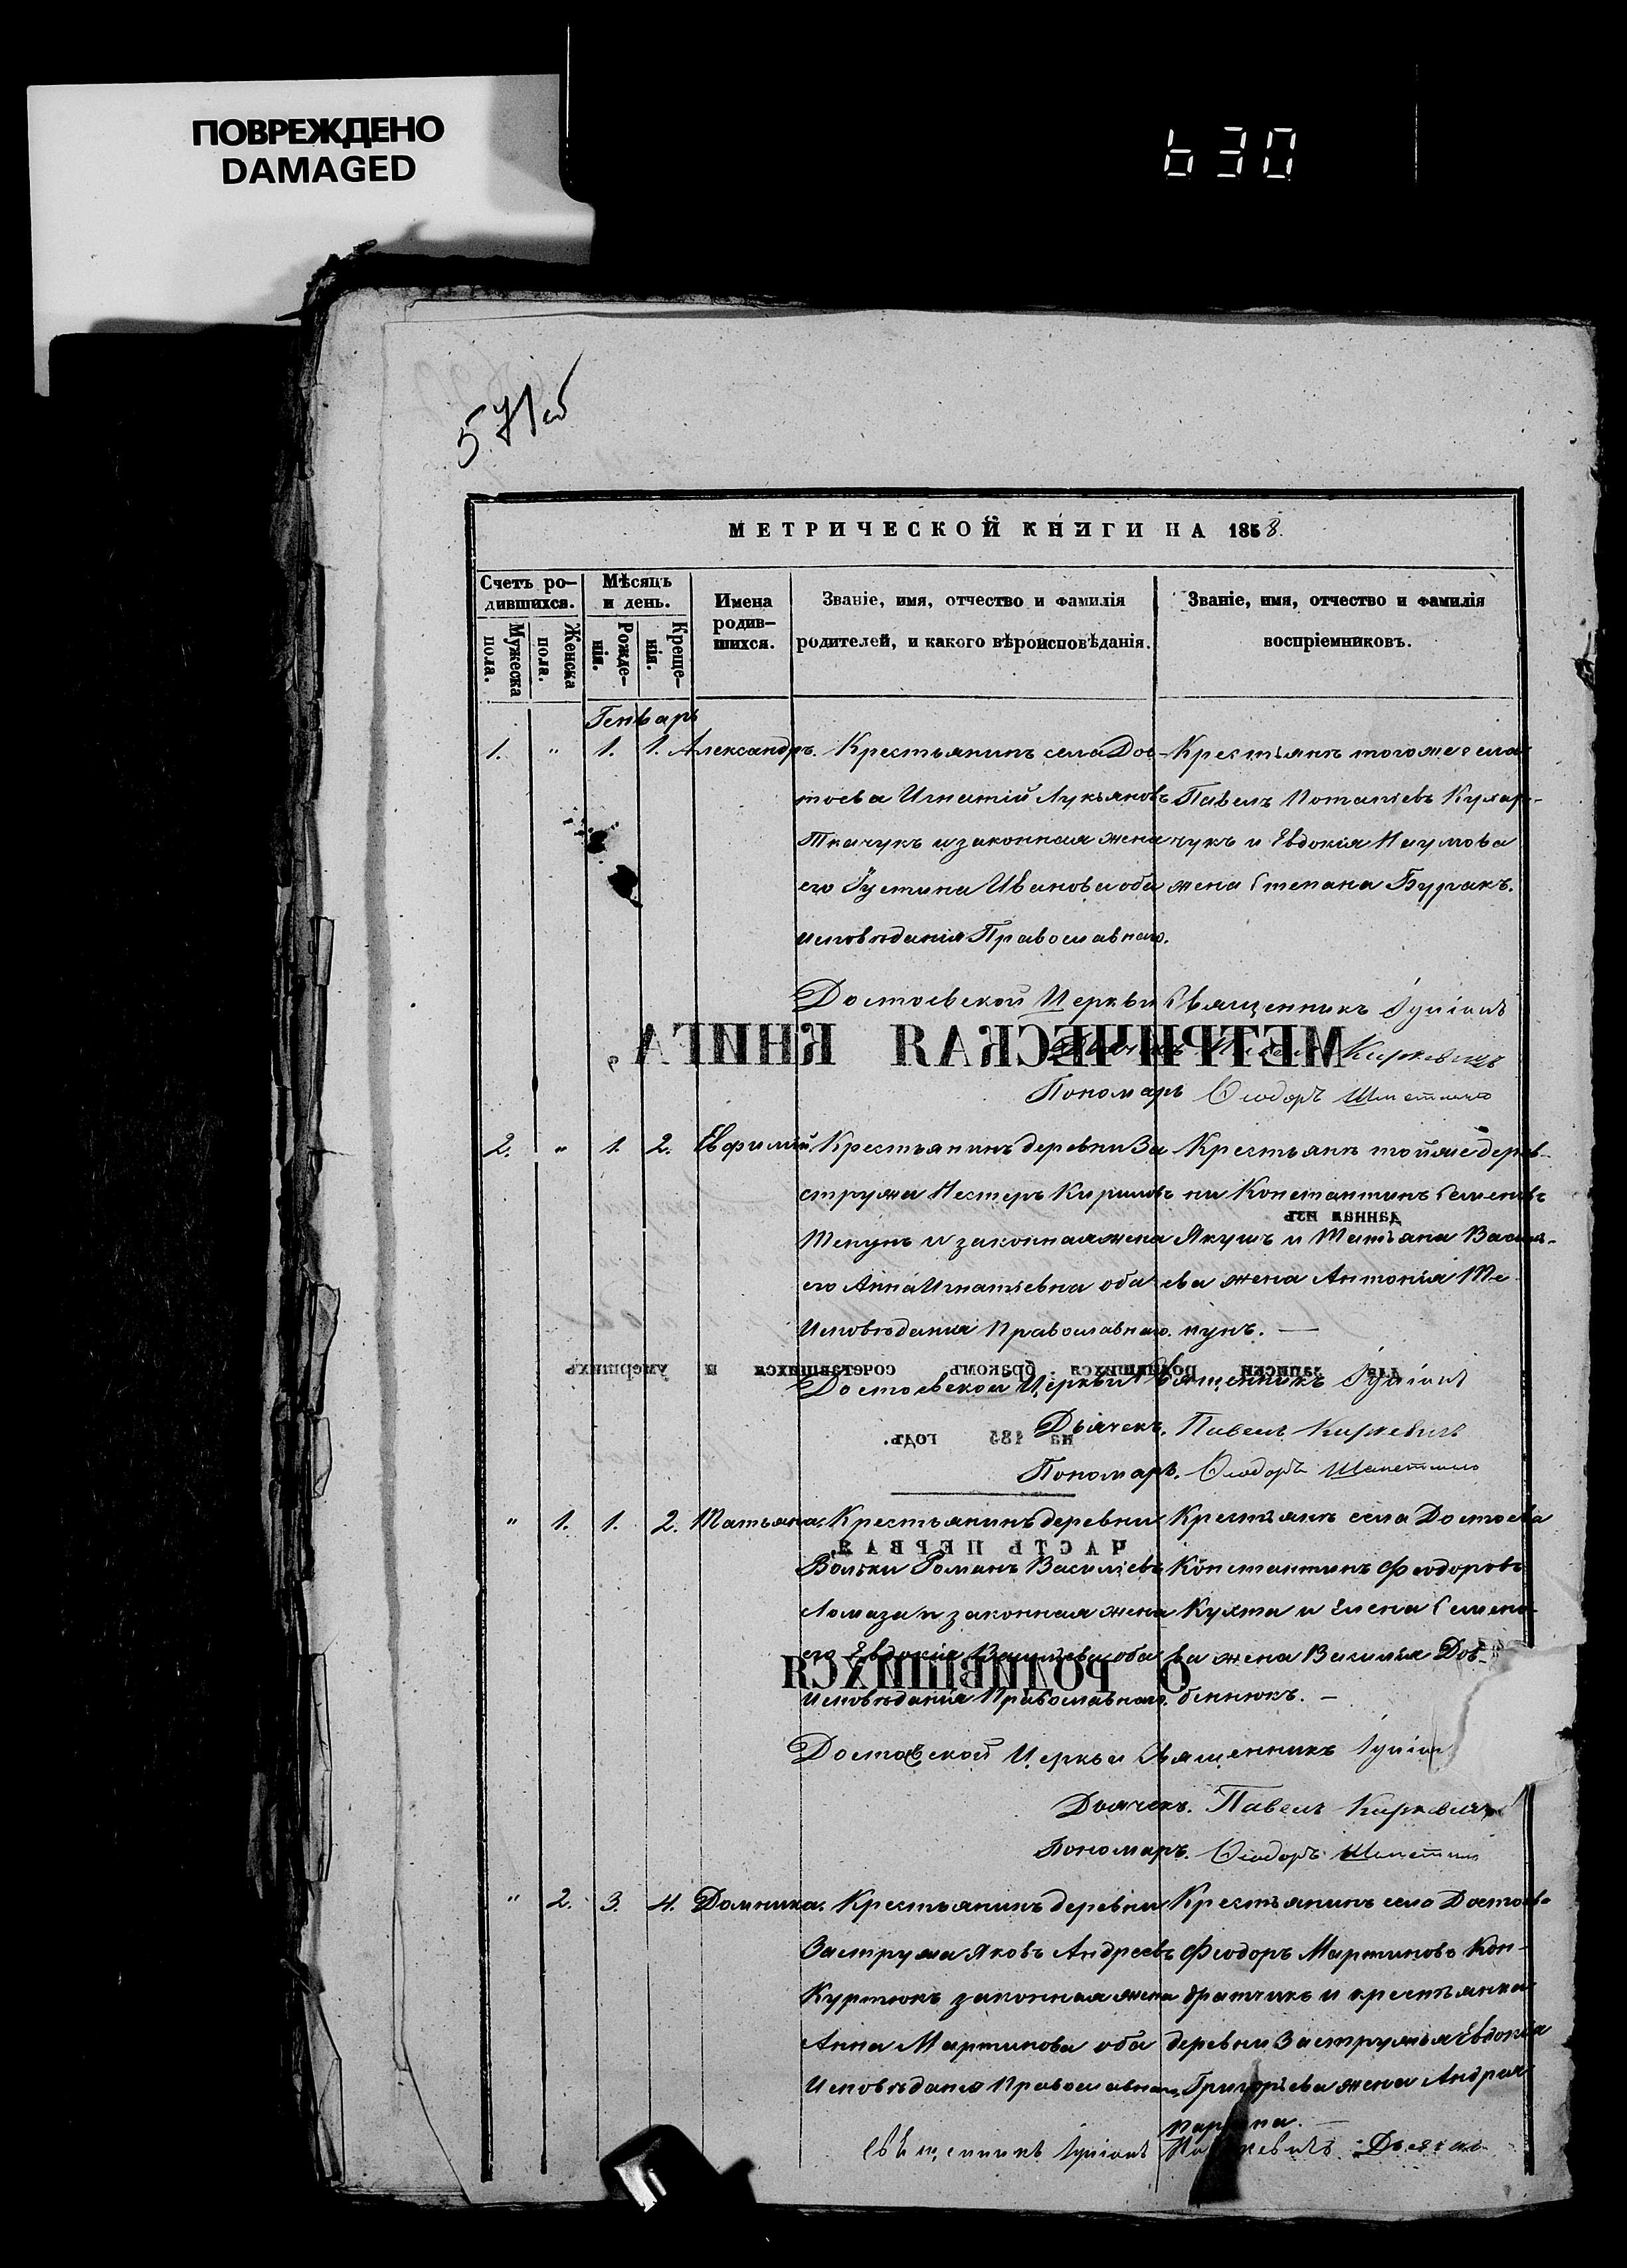 ПОВРЕЖДЕНО
DAMAGED
630
571об
МЕТРИЧЕСКОЙ КНИГИ НА 1858.
Счетъ ро-
дившихся.
Мужеска пола.
Женска пола.
Мѣсяцъ
и день.
Рожде-
нія.
Креще-
нія.
Имена
родив-
шихся.
Званіе, имя, отчество и фамилія
родителей, и какого вѣроисповѣданія.
Званіе, имя, отчество и фамилія
воспріемниковъ.
Генварь
1. " 1. 1. Александръ. Крестьянинъ села Дос-
тоева Игнатій Лукьяновъ
Ткачукъ и законная жена
его Іустина Иванова оба
исповѣданія Православнаго.
Крестьянъ тогоже села
Павелъ Потапіевъ Кухар-
чукъ и Евдокія Наумова
жена Степана Буракъ.
Достоевской Церкви Священникъ Іуліанъ
Киркевичъ
Пономарь Ѳеодоръ
2. " 1. 2. Евфимій. Крестьянинъ деревни За
стружа Нестеръ Кириловъ
Тепунъ и законная жена
его Анна Игнатіевна оба
Исповѣданія Православнаго.
Крестьянъ тойже дерев-
ни Константинъ Семеновъ
Якушъ и Татьяна Василь-
ева жена Антонія Те
пунъ. —
Достоевской Церкви Священникъ Іуліанъ
Дьячекъ. Павелъ Киркевичъ
Пономарь. Ѳеодоръ
" 1. 1. 2. Татьяна. Крестьянинъ деревни
Вольки Романъ Василіевъ
Ломаза и законная жена
его Евдокія Василіева оба
Исповѣданія Православнаго.
Крестьянъ села Достоева
Константинъ Феодоровъ
Кухта и Елена Семено-
ва жена Василія Дов-
беннюкъ. —
Достоевской Церкви Священникъ
Дьячекъ. Павелъ Киркевичъ
Пономарь. Ѳеодоръ
" 2. 3. 4. Домника. Крестьянинъ деревни
Застружа Яковъ Андреевъ
Куртюкъ законная жена
Анна Мартинова оба
Исповѣданія Православнаго
Крестьянинъ села Достоева
Феодоръ Мартиновъ Кон-
дратчикъ и крестьянка
деревни Застружья Евдокія
Григоріева жена Андрея
Священникъ Іуліанъ Дьячекъ
МЕТРИЧЕСКАЯ КНИГА,
данная изъ
для записки родившихся бракомъ сочетавшихся и умершихъ
на 185 годъ.
ЧАСТЬ ПЕРВАЯ,
О РОДИВШИХСЯ